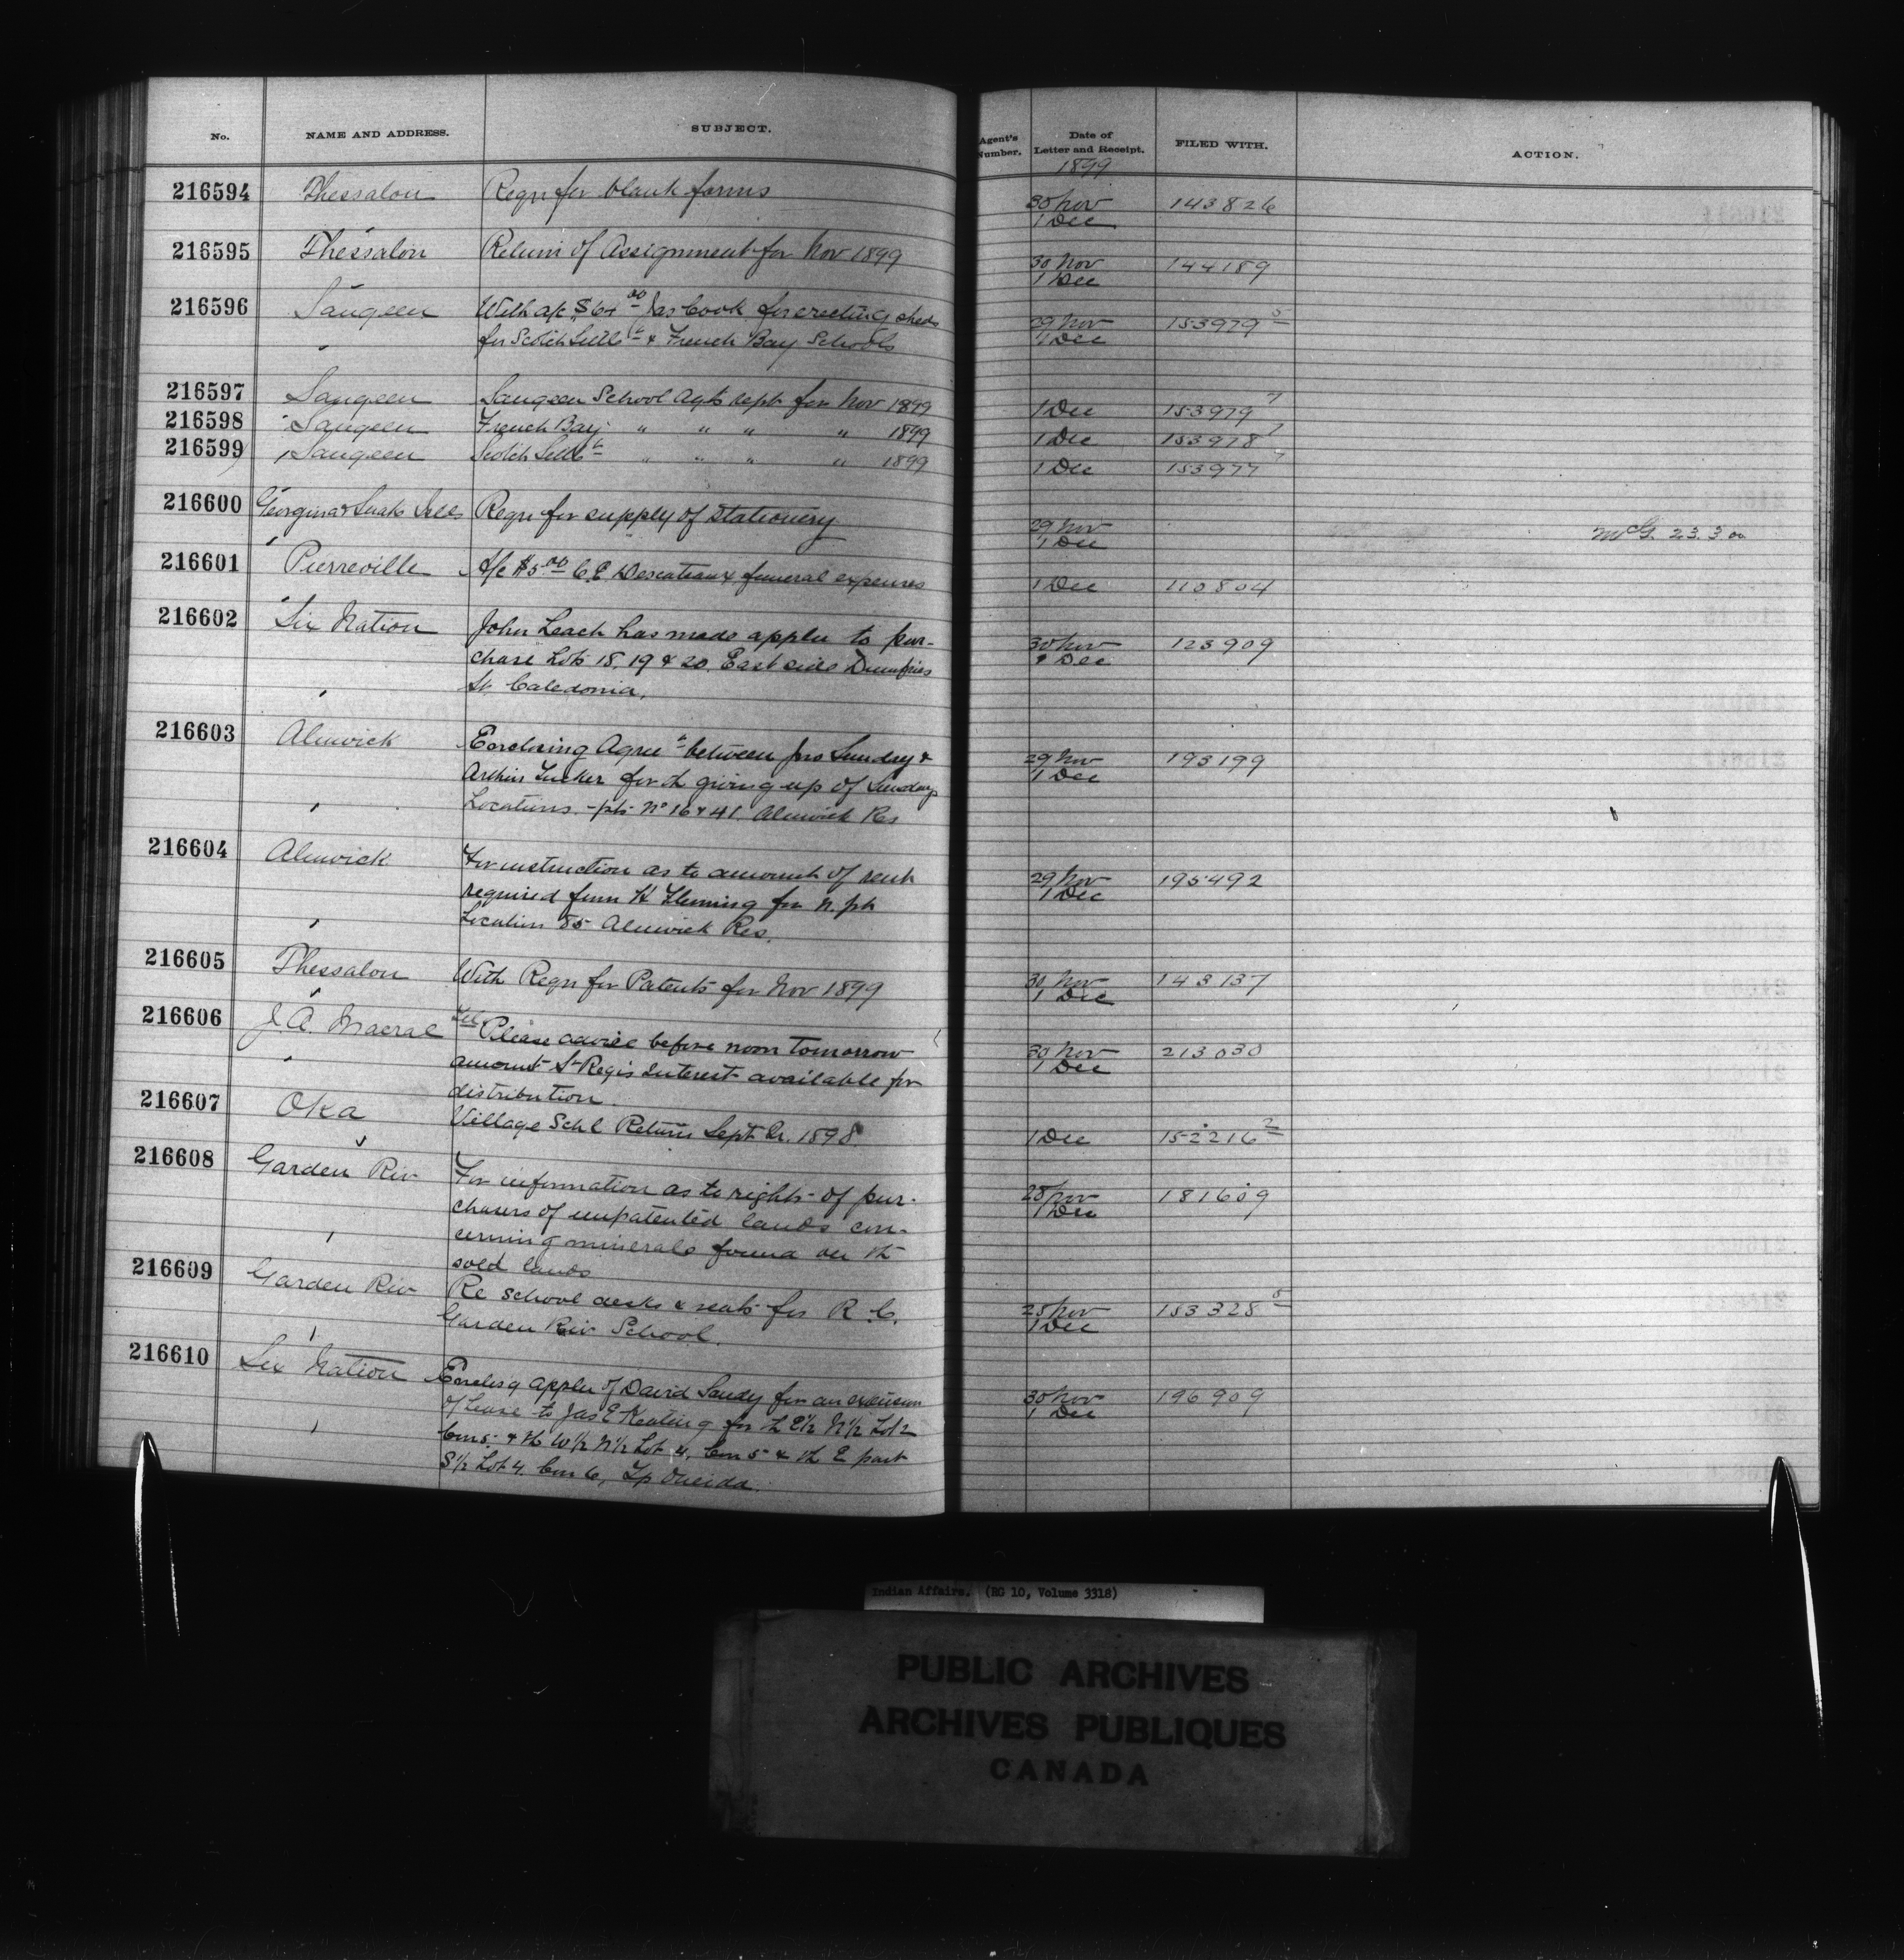 No. NAME AND ADDRESS. SUBJECT. Agent's Number. Date of Letter and Receipt. FILED WITH. ACTION.
1899
216594 Thessalon Reqn for blank forms 30 Nov 143826
1 Dec
216595 Thessalon Return of Assignment for Nov 1899 30 Nov 144189
1 Dec
216596 Saugeen With a/c $64 00 Jas Cook for erecting sheds 29 Nov 153979 5
for Scotch Settlt & French Bay Schools 1 Dec
216597 Saugeen Saugeen School Agts rept for Nov 1899 1 Dec 153979 7
216598 Saugeen French Bay " " " " 1899 1 Dec 153978 7
216599 Saugeen Scotch Settlt " " " " 1899 1 Dec 153977 7
216600 Georgina & Snake Isles Reqn for supply of stationery 29 Nov McG. 23.3.00
1 Dec
216601 Pierreville A/c $5 00 C E Descoteaux funeral expenses 1 Dec 110804
216602 Six Nation John Leach has made appln to pur- 30 Nov 123909
chase Lots 18, 19 & 20 East side Dumfries 1 Dec
St. Caledonia.
216603 Alnwick Enclosing Agreet between Jno Sunday & 29 Nov 193199
Arthur Tucker for th giving up of Sundays 1 Dec
Locations - pts No 16 & 41 Alnwick Res
216604 Alnwick For instruction as to amount of rent 29 Nov 195492
required from H Fleming for N. pt 1 Dec
Location 85 Alnwick Res.
216605 Thessalon With Reqn for Patents for Nov 1899 30 Nov 143137
1 Dec
216606 J. A. Macrae Tel Please advise before noon tomorrow 30 Nov 213030
amount St Regis Interest available for 1 Dec
distribution.
216607 Oka Village Schl Return Sept Qr. 1898 1 Dec 152216 2
216608 Garden Riv For information as to rights of pur- 28 Nov 181609
chasers of unpatented lands con- 1 Dec
cerning minerals found on th
sold lands
216609 Garden Riv Re school desks & seats for R. C. 28 Nov 153328 5
Garden Riv School. 1 Dec
216610 Six Nation Enclosg appln of David Sandy for an extension 30 Nov 196909
of Lease to Jas E Keating for th E½ N½ Lot 2 1 Dec
Con 5. & th W½ N½ Lot 4, Con 5 & th E part
S½ Lot 4. Con 6, Tp Oneida.
Indian Affairs. (RG 10, Volume 3318)
PUBLIC ARCHIVES
ARCHIVES PUBLIQUES
CANADA